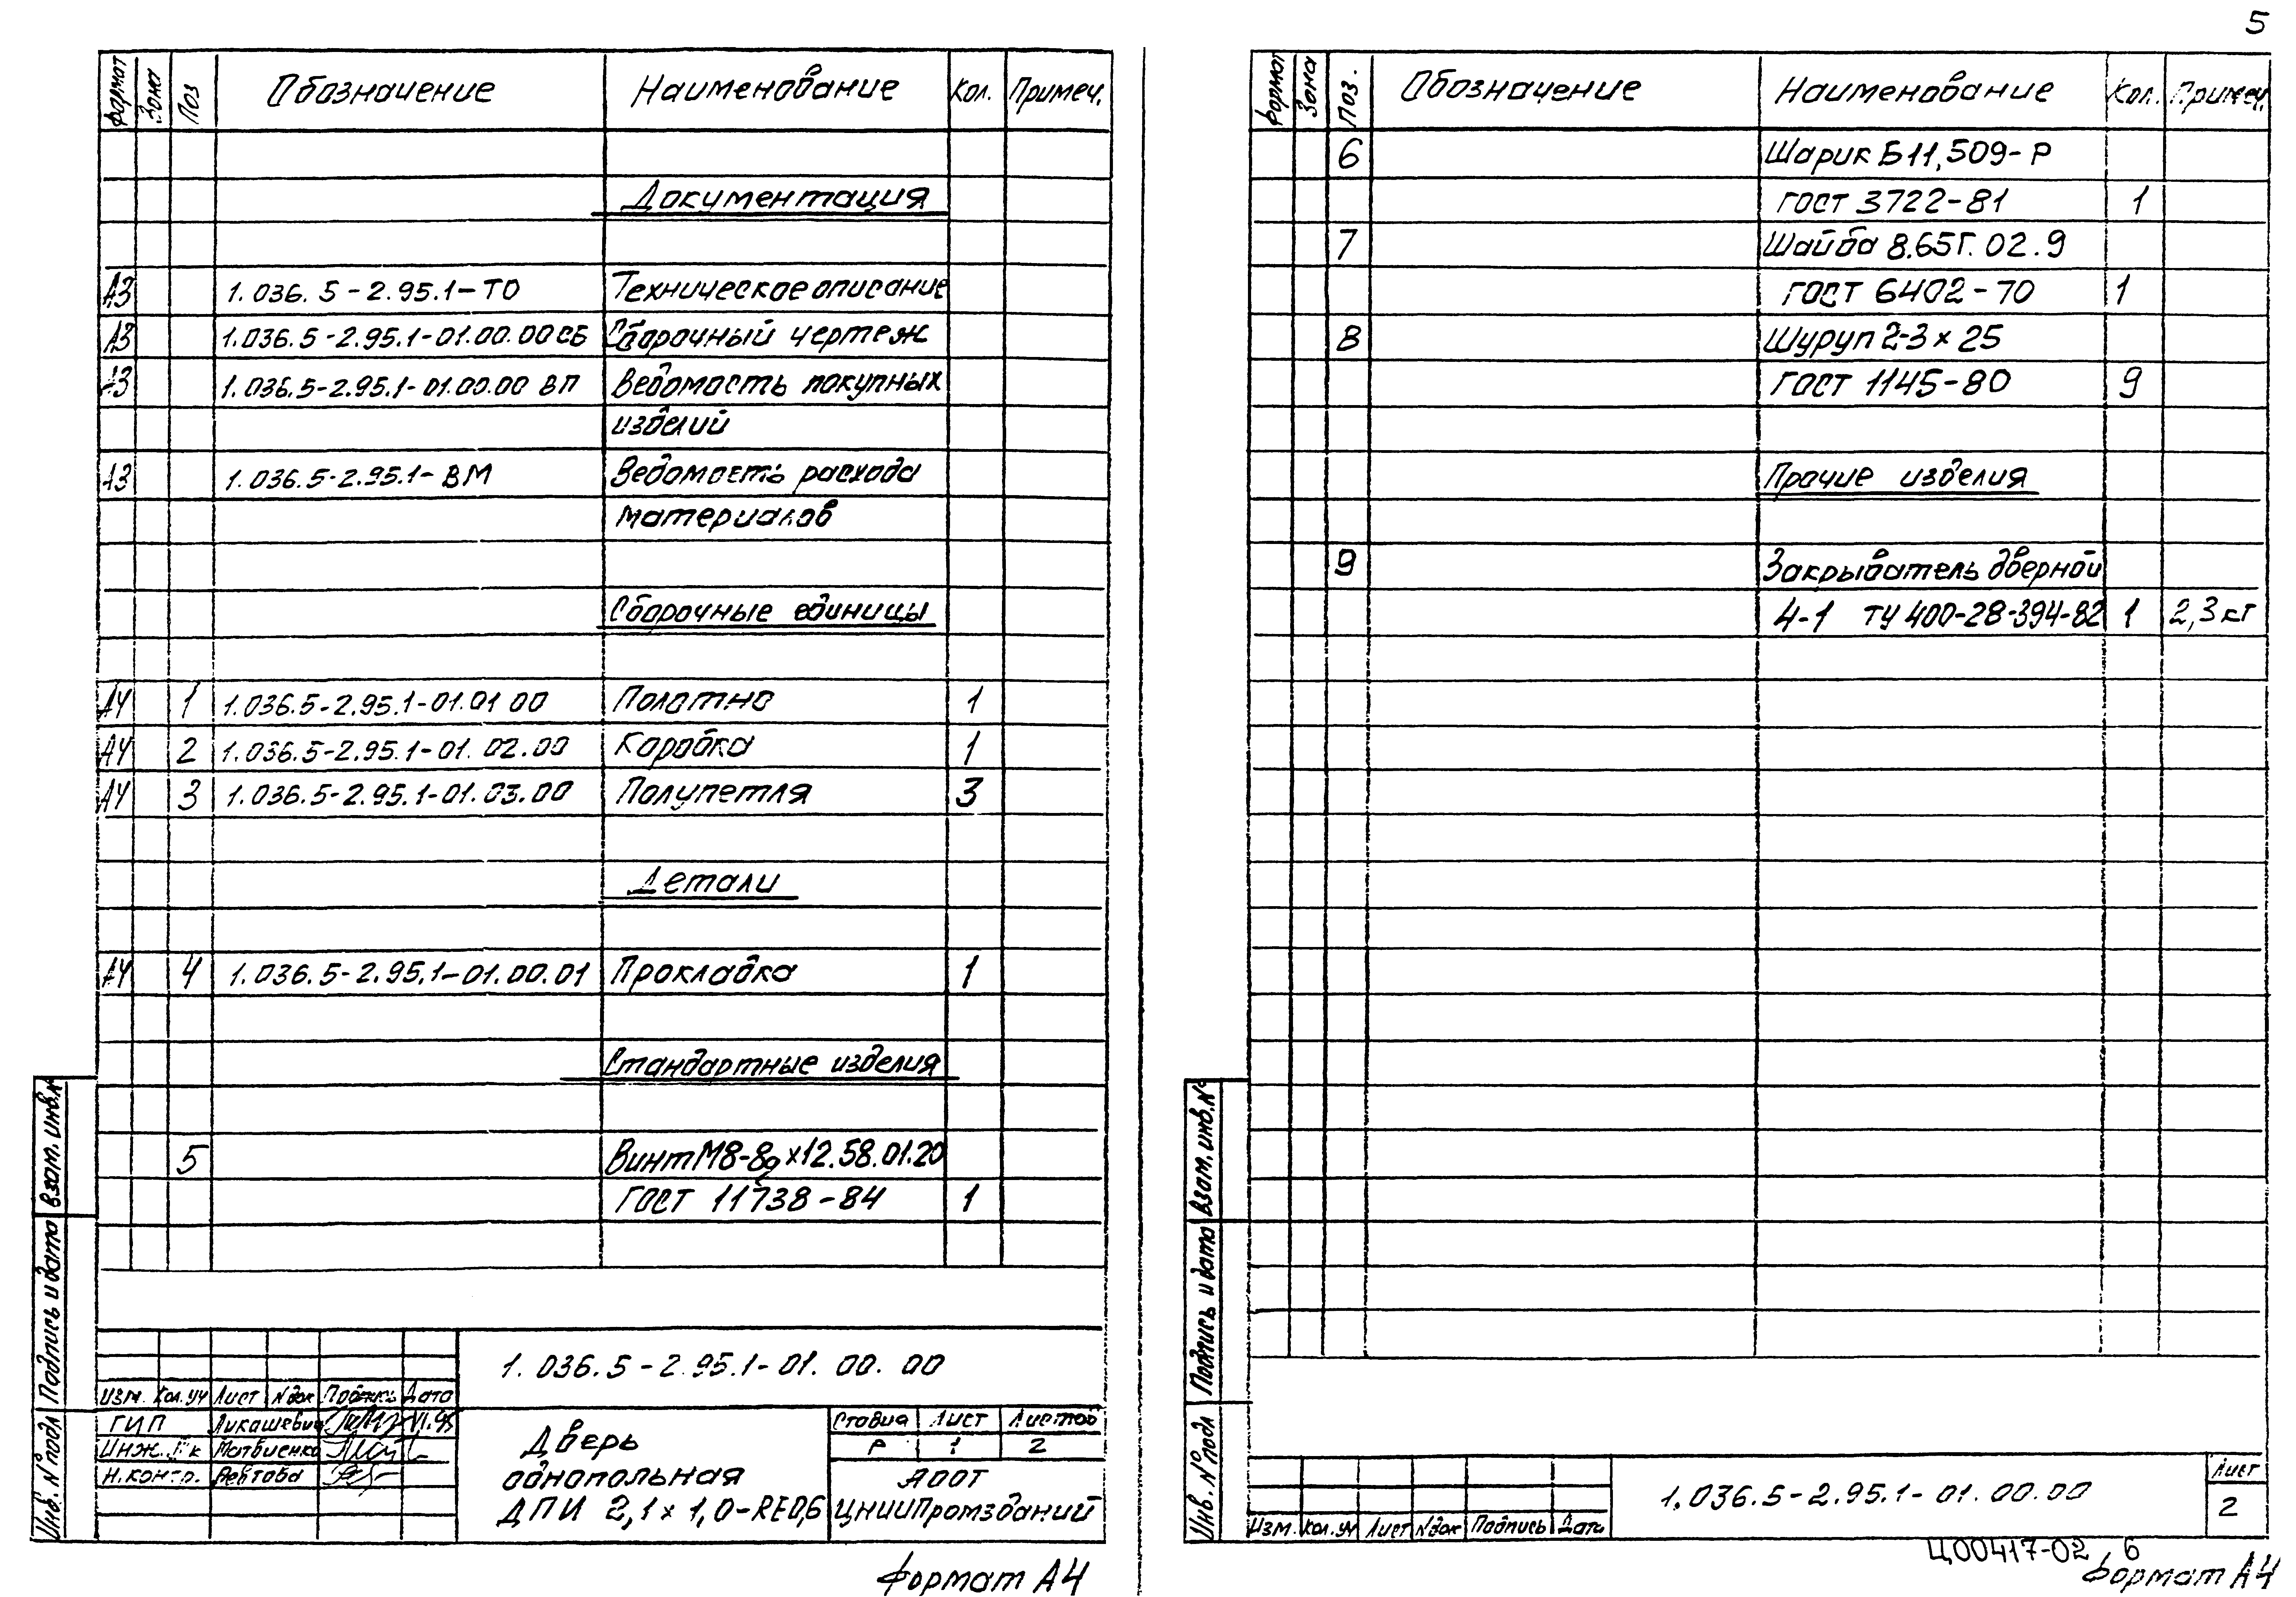 5
Формат Зона Поз Обозначение Наименование Кол. Примеч.
Документация
А3 1.036.5-2.95.1-ТО Техническое описание
А3 1.036.5-2.95.1-01.00.00СБ Сборочный чертеж
А3 1.036.5-2.95.1-01.00.00 ВП Ведомость покупных
изделий
А3 1.036.5-2.95.1-ВМ Ведомость расхода
материалов
Сборочные единицы
А4 1 1.036.5-2.95.1-01.01 00 Полотно 1
А4 2 1.036.5-2.95.1-01.02.00 Коробка 1
А4 3 1.036.5-2.95.1-01.03.00 Полупетля 3
Детали
А4 4 1.036.5-2.95.1-01.00.01 Прокладка 1
Стандартные изделия
5 Винт М8-8g×12.58.01.20
ГОСТ 11738-84 1
1.036.5-2.95.1-01.00.00
Изм. Кол.уч Лист №док Подпись Дата
ГИП Лукашевич VI.95
Инж. Iк Матвиенко
Н.контр.
Дверь
однопольная
ДПИ 2,1×1,0-RE0,6
Стадия Лист Листов
Р 1 2
АООТ
ЦНИИПромзданий
Инв. № подл Подпись и дата Взам. инв.№
Формат А4
Формат Зона Поз. Обозначение Наименование Кол. Примеч.
6 Шарик Б11,509-Р
ГОСТ 3722-81 1
7 Шайба 8.65Г.02.9
ГОСТ 6402-70 1
8 Шуруп 2-3×25
ГОСТ 1145-80 9
Прочие изделия
9 Закрыватель дверной
4-1 ТУ 400-28-394-82 1 2,3кг
Инв. № подл Подпись и дата Взам. инв.№
Изм. Кол.уч Лист №док Подпись Дата
1.036.5-2.95.1-01.00.00
Лист
2
Ц00417-02 6
Формат А4